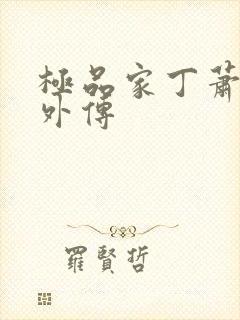 極品家丁蕭
外傳
羅賢哲